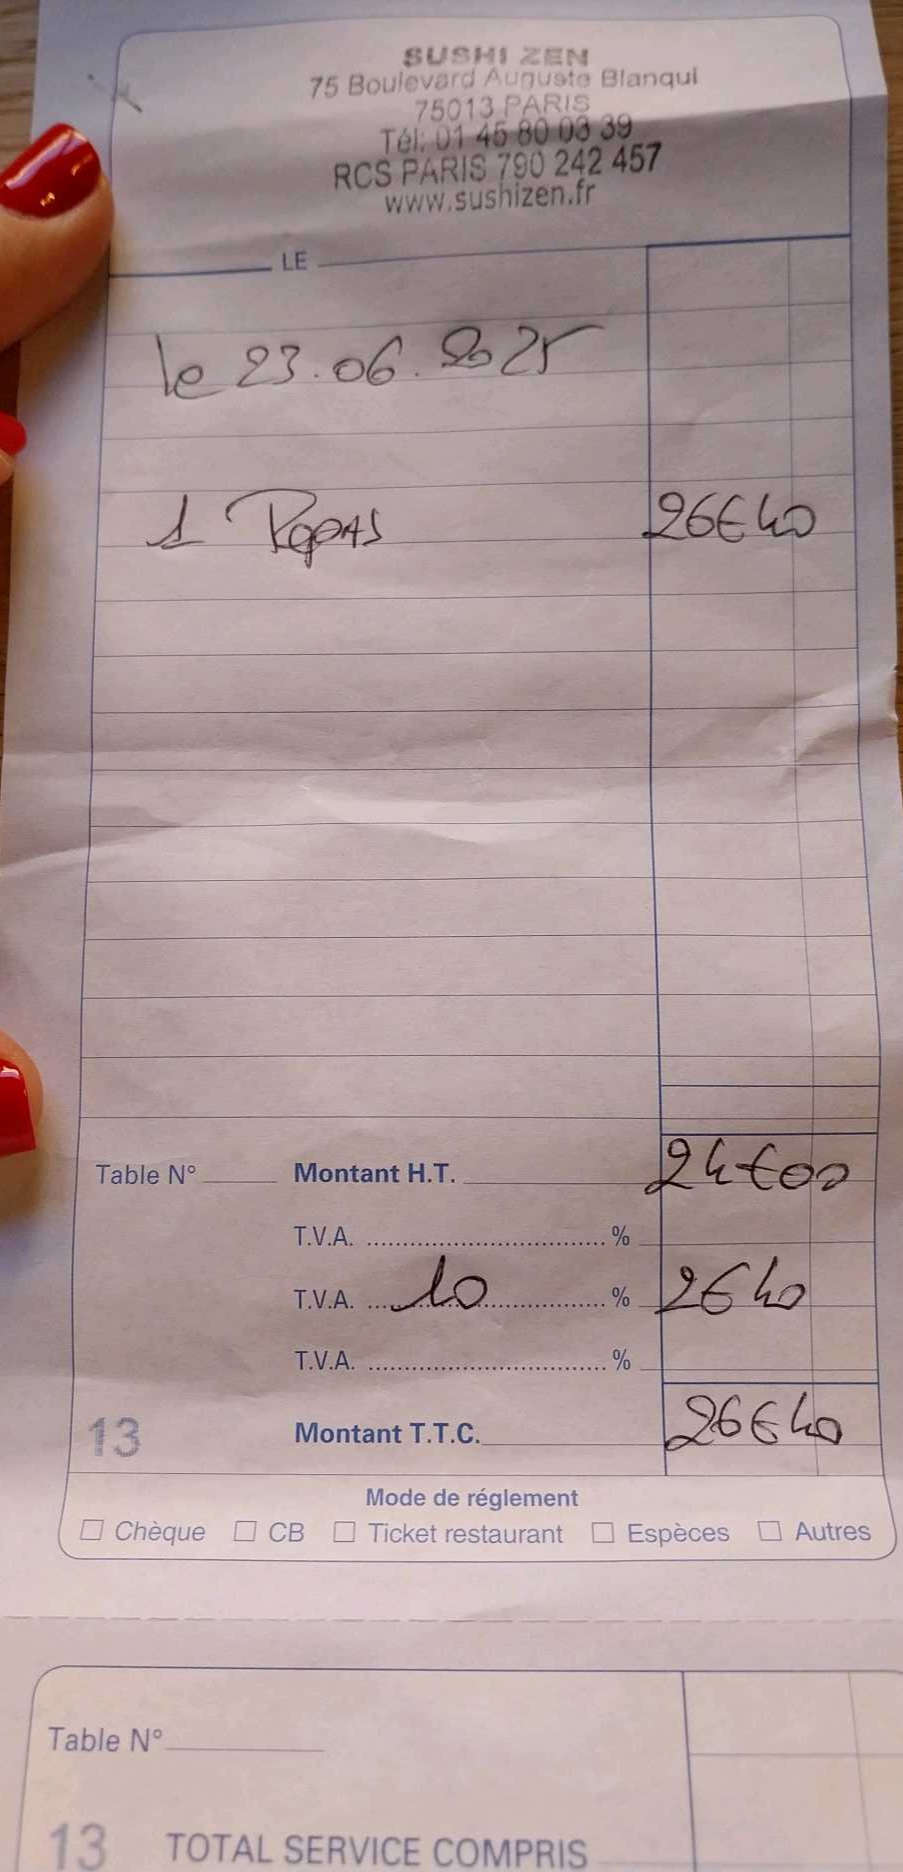 SUSHI ZEN
75 Boulevard Auguste Blanqui
75013 PARIS
Tél: 01 45 80 03 39
RCS PARIS 790 242 457
www.sushizen.fr
LE
le 23.06.2025
1 Repas 26€40
Table N° Montant H.T. 24€00
T.V.A. %
T.V.A. 10 % 2€40
T.V.A. %
13 Montant T.T.C. 26€40
Mode de réglement
Chèque CB Ticket restaurant Espèces Autres
Table N°
13 TOTAL SERVICE COMPRIS